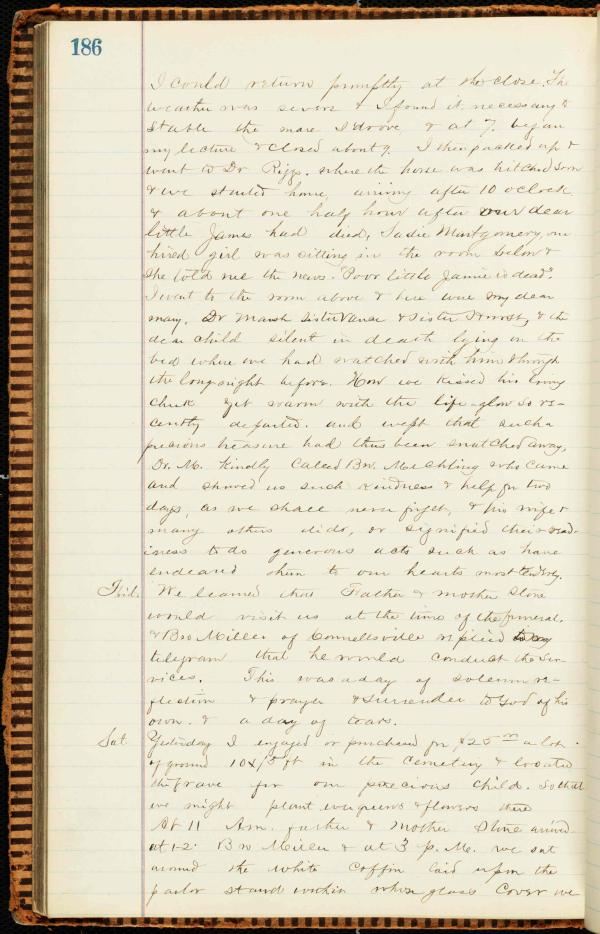 186
I could return promptly at the close. The
weather was severe & I found it necessary to
stable the mare I drove, & at 7. began
my lecture & closed about 9. I then packed up &
went to Dr Riggs. where the horse was hitched soon
& we started home, arriving after 10 oclock
& about one half hour after our dear
little James had died, Sadie Montgomery, our
hired girl was sitting in the room below &
she told me the news. "Poor little Jamie is dead".
I went to the room above & here were my dear
mary. Dr Marsh Sister Vance & Sister & the
dear child silent in death lying on the
bed where we had watched with him through
the long night before. How we kissed his loving
cheek yet warm with the life-glow so re-
cently departed. and wept that such a
precious treasure had thus been snatched away,
Dr. M. Kindly Called Bro. who came
and showed us such kindness & help for two
days, as we shall never forget, & his wife &
many others did, or signified their read-
iness to do generous acts such as have
endeared them to our hearts most tenderly.
Frid. We learned that Father & mother Stone
would visit us at the time of the funeral.
& Bro Miller of Connellsville replied to my
telegram that he would conduct the ser-
vices. This was a day of solemn re-
flection & prayer & surrender to God of his
own. & a day of tears.
Sat Yesterday I engaged or purchased for $25 a lot
of ground 10x15 ft in the Cemetery & located
the grave for our precious child. So that
we might plant evergreens & flowers there
At 11 Am. father & Mother Stone arrived
at 12. Bro Miller & at 3 p. M. we sat
around the white coffin laid upon the
parlor stand within whose glass cover we